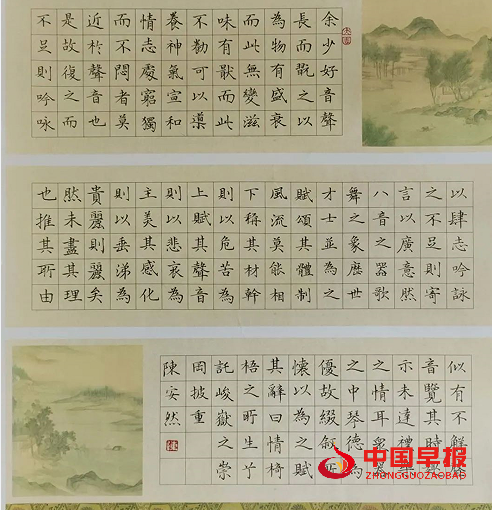 余少好音聲
長而翫之以
為物有盛衰
而此無變滋
味有猒而此
不勌可以導
養神氣宣和
情志處窮獨
而不悶者莫
近於聲音也
是故復之而
不足則吟咏
以肆志吟詠
之不足則寄
言以廣意然
八音之器歌
舞之象歷世
才士並為之
賦頌其體制
風流莫能相
下稱其材幹
則以危苦為
上賦其聲音
則以悲哀為
主美其感化
則以垂涕為
貴麗則麗矣
然未盡其理
也推其所由
似有不解
音覽其時
示未達禮
之情耳眾
之中琴德為
優故綴叙所
懷以為之賦
其辭曰情椅
梧之所生兮
託峻嶽之崇
岡披重
陳安然
中国早报
ZHONGGUOZAOBAO